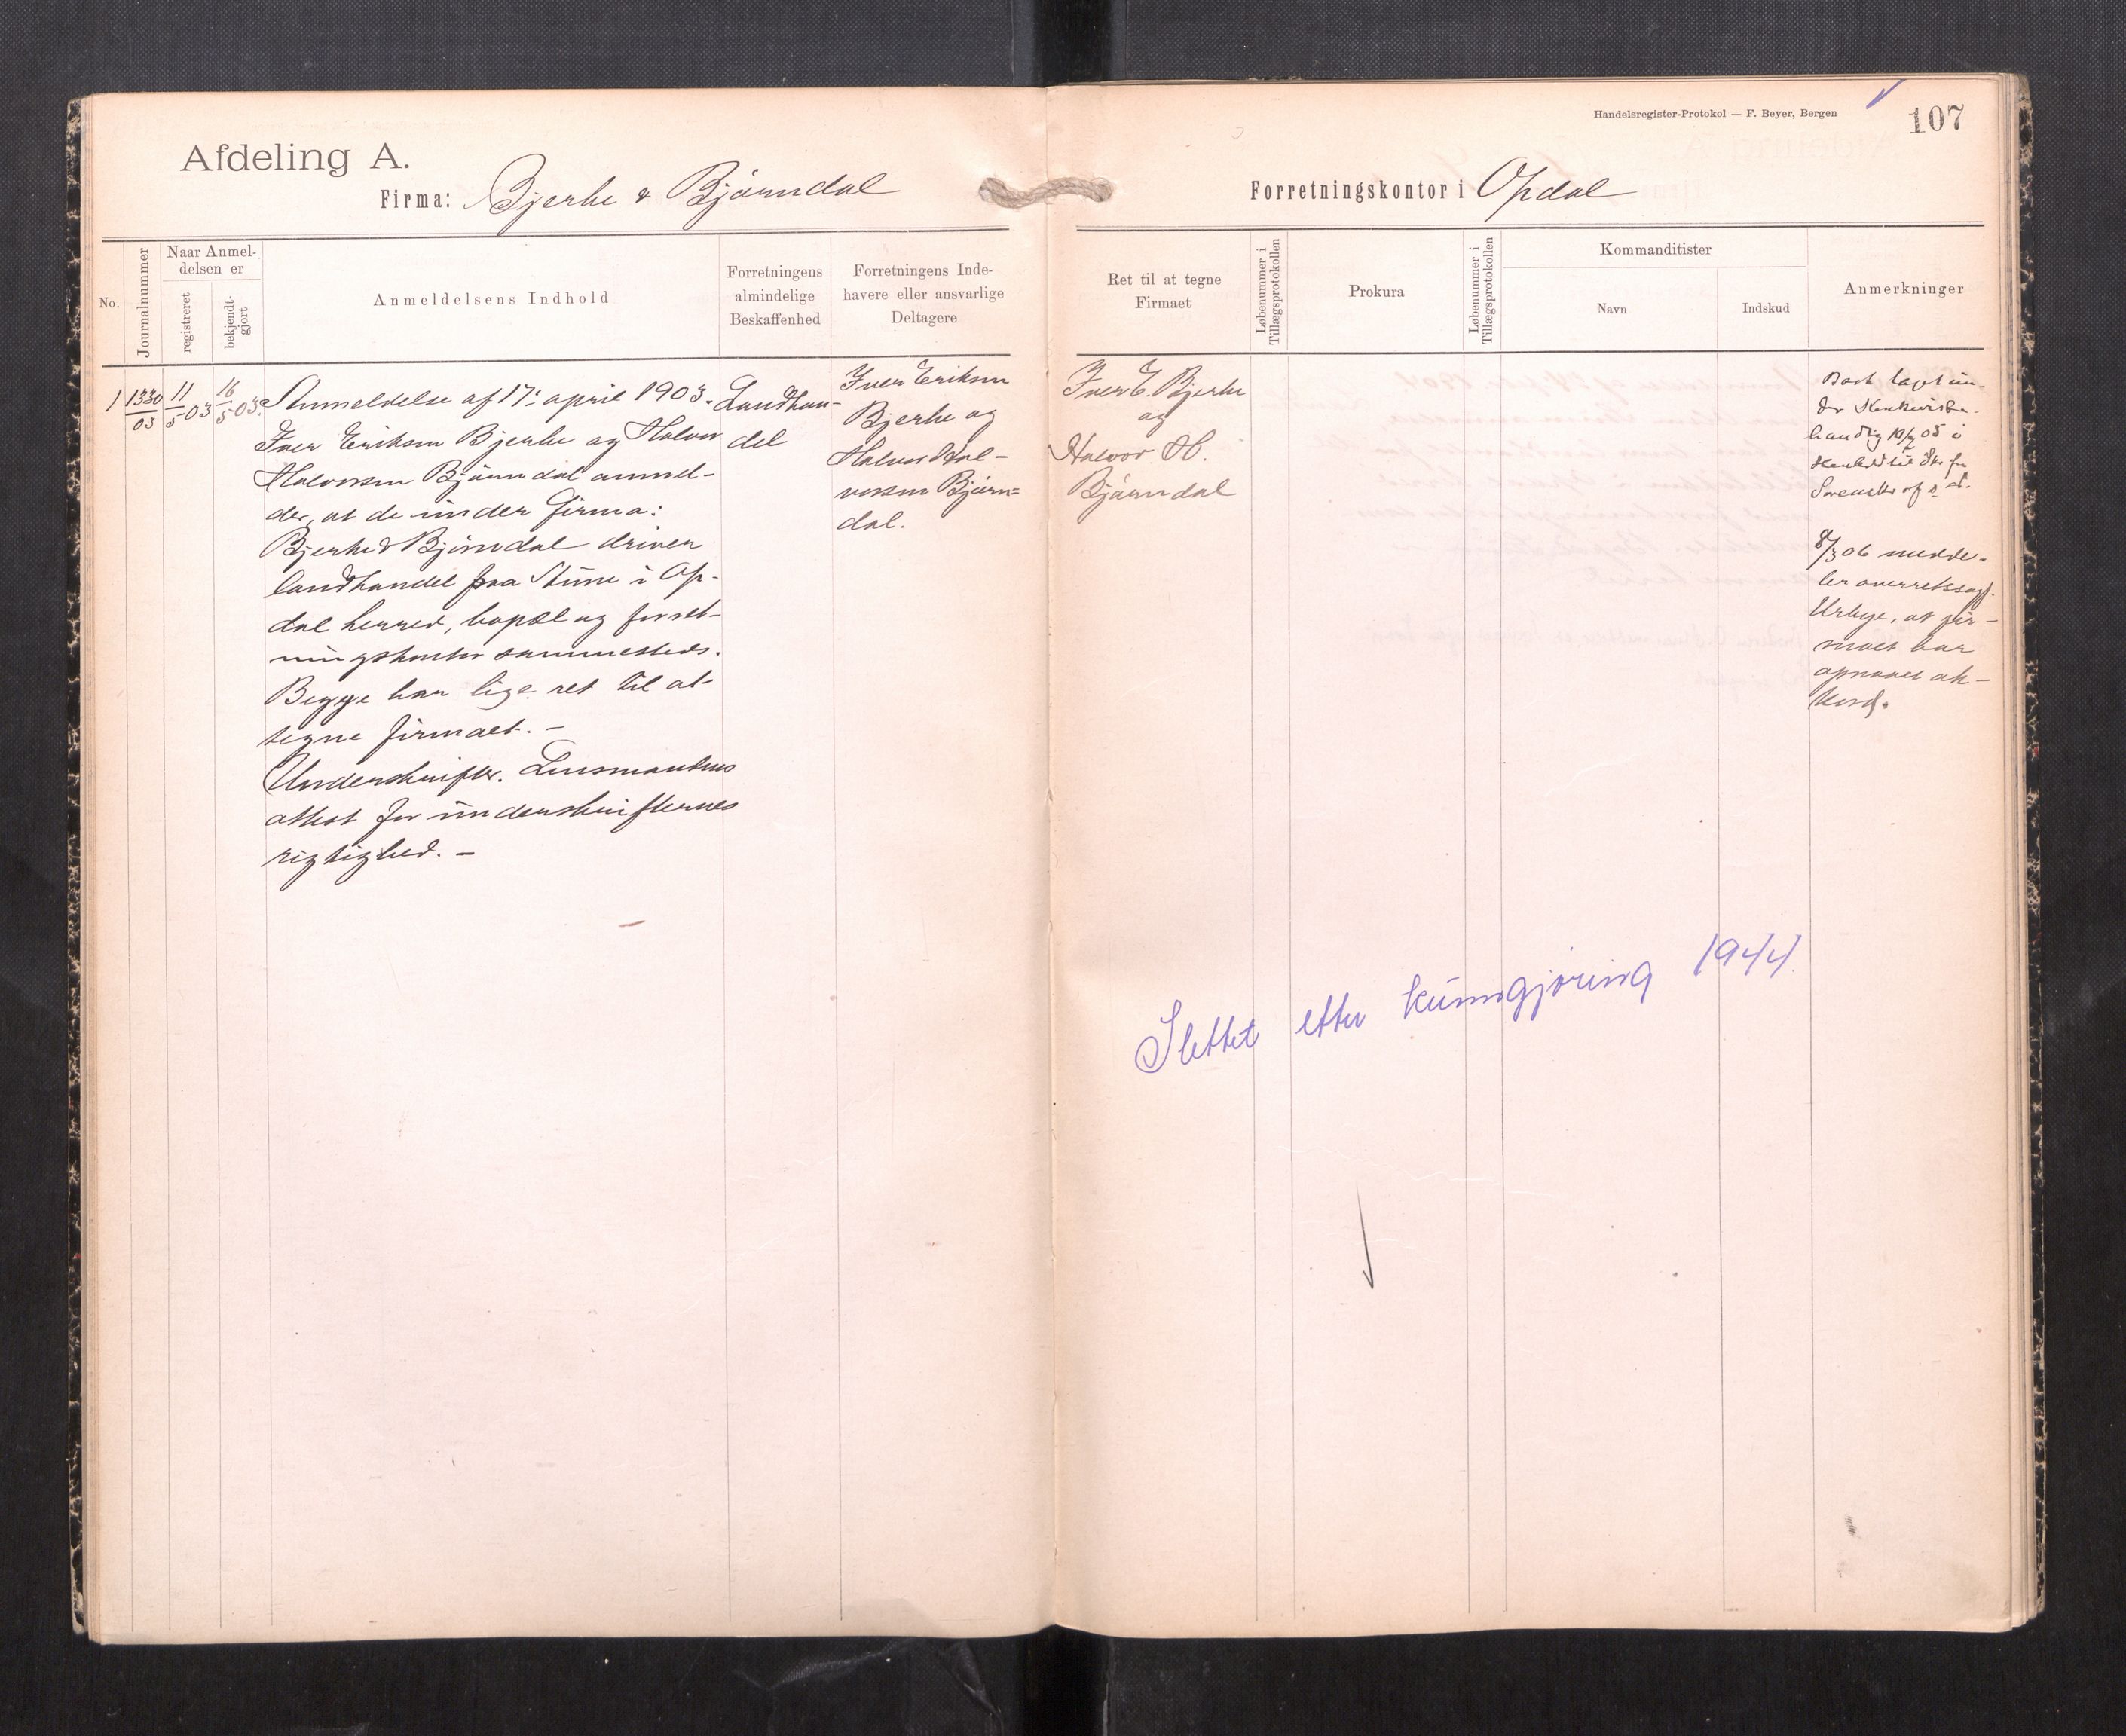 Handelsregister-Protokol — F. Beyer, Bergen
107
Afdeling A.
Firma: Bjerke & Björndal
Forretningskontor i Opdal
No.
Journalnummer
Naar Anmel-
delsen er
registreret
bekjendt-
gjort
Anmeldelsens Indhold
Forretningens
almindelige
Beskaffenhed
Forretningens Inde-
havere eller ansvarlige
Deltagere
Ret til at tegne
Firmaet
Løbenummer i
Tillægsprotokollen
Prokura
Løbenummer i
Tillægsprotokollen
Kommanditister
Navn
Indskud
Anmerkninger
1
1330/03
11/5-03
16/5-03
Anmeldelse af 17: april 1903.
Iver Eriksen Bjerke og Halvor
Halvorsen Björndal anmel-
der, at de under firma:
Bjerke & Björndal driver
landhandel paa Stüne i Op-
dal herred, bopæl og forret-
ningskontor sammesteds.
Begge har lige ret til at
tegne firmaet. —
Underskrifter. Lensmandens
attest for underskrifternes
rigtighed. —
Landhan-
del
Iver Eriksen
Bjerke og
Halvor Hal-
vorsen Björn=
dal.
Iver E. Bjerke
og
Halvor H.
Björndal
Boet taget un-
der Konkursbe-
handlg 05 i
Henhold til Skr fra
8/3 06 medde-
ler overretssagf.
at fir-
maet har
opnaaet ak-
kord.
Slettet etter kunngjøring 1944.